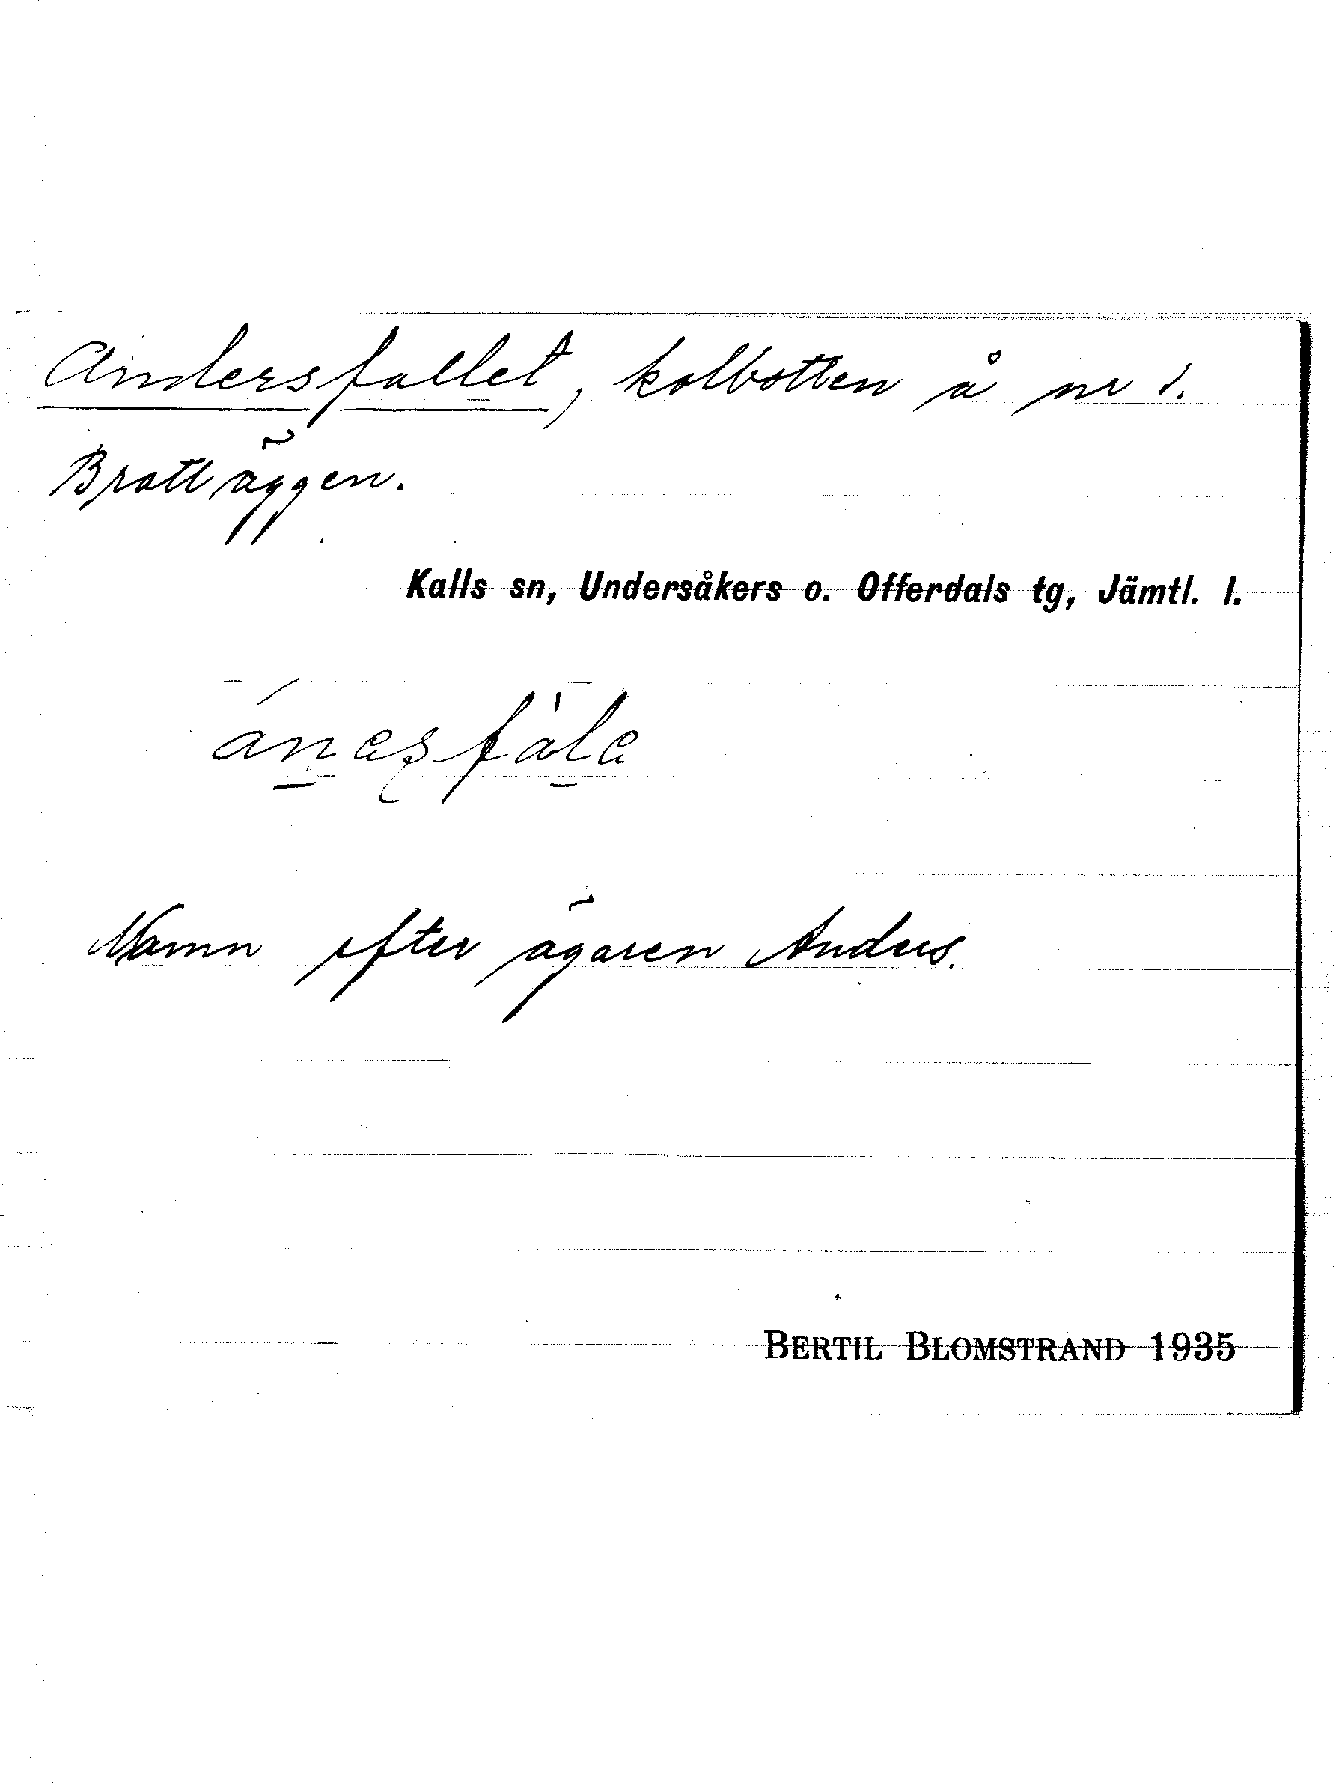 Andersfallet, kolbotten å nr 1.
Brattäggen.
Kalls sn, Undersåkers o. Offerdals tg, Jämtl. l.
Namn efter ägaren Anders.
BERTIL BLOMSTRAND 1935